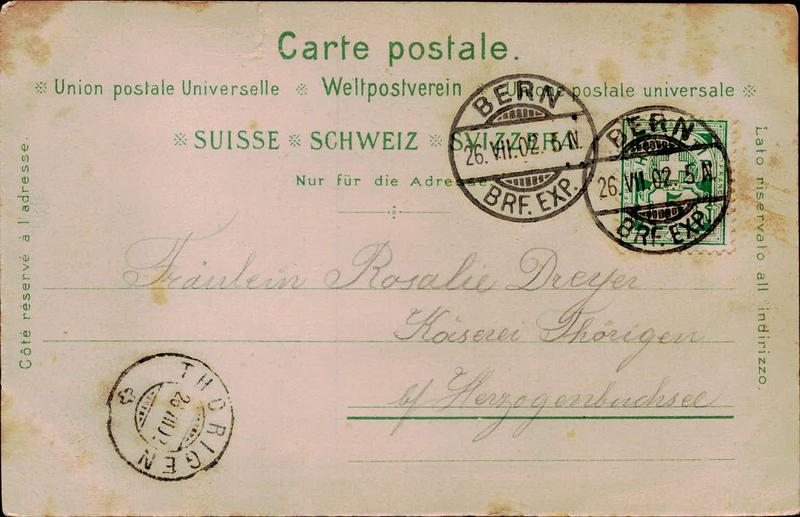 Carte postale.
※ Union postale Universelle ※ Weltpostverein ※ Unione postale universale ※
※ SUISSE ※ SCHWEIZ ※ SVIZZERA ※
Nur für die Adresse
Côté réservé à l'adresse.
Lato riservato all indirizzo.
BERN
26.VII.02. 5 N.
BRF. EXP.
BERN
26.VII.02. 5 N.
BRF. EXP.
Fräulein Rosalie Dreyer
Käserei Thörigen
b/ Herzogenbuchsee
THÖRIGEN